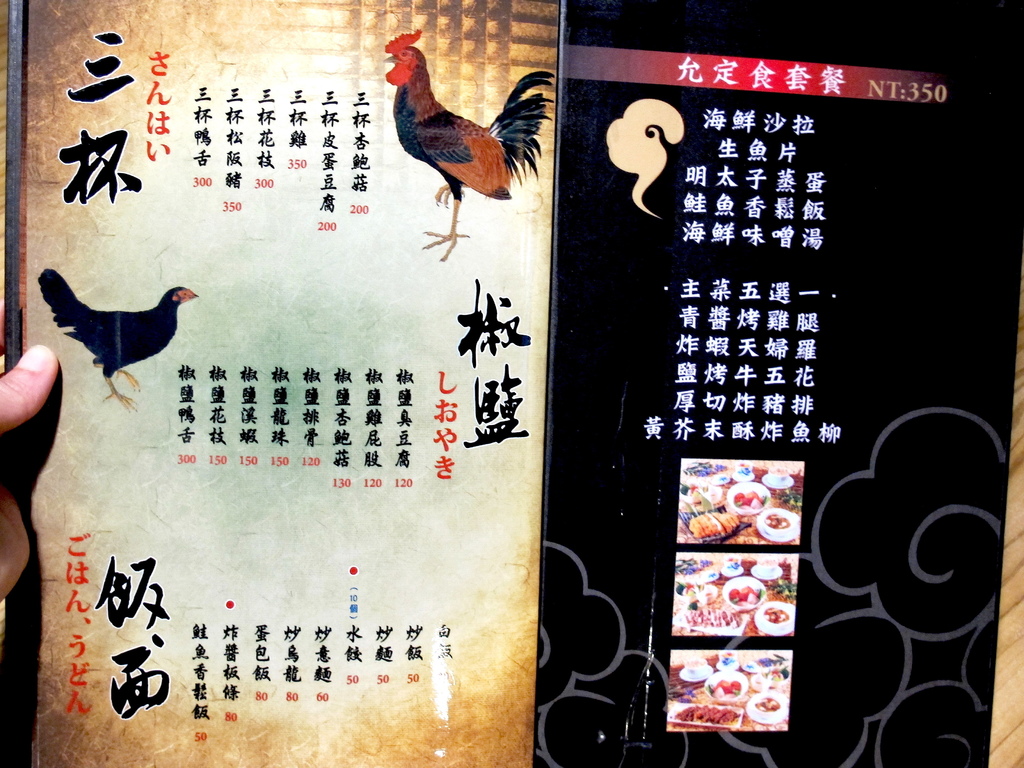 三杯
さんはい
三杯杏鮑菇
200
三杯皮蛋豆腐
200
三杯雞
350
三杯花枝
300
三杯松阪豬
350
三杯鴨舌
300
椒鹽
しおやき
椒鹽臭豆腐
120
椒鹽雞屁股
120
椒鹽杏鮑菇
130
椒鹽排骨
120
椒鹽龍珠
150
椒鹽溪蝦
150
椒鹽花枝
150
椒鹽鴨舌
300
飯、面
ごはん、うどん
白飯
炒飯
50
炒麵
50
水餃
(10個)
50
炒意麵
60
炒烏龍
80
蛋包飯
80
炸醬板條
80
鮭魚香鬆飯
50
允定食套餐 NT:350
海鮮沙拉
生魚片
明太子蒸蛋
鮭魚香鬆飯
海鮮味噌湯
·主菜五選一·
青醬烤雞腿
炸蝦天婦羅
鹽烤牛五花
厚切炸豬排
黃芥末酥炸魚柳